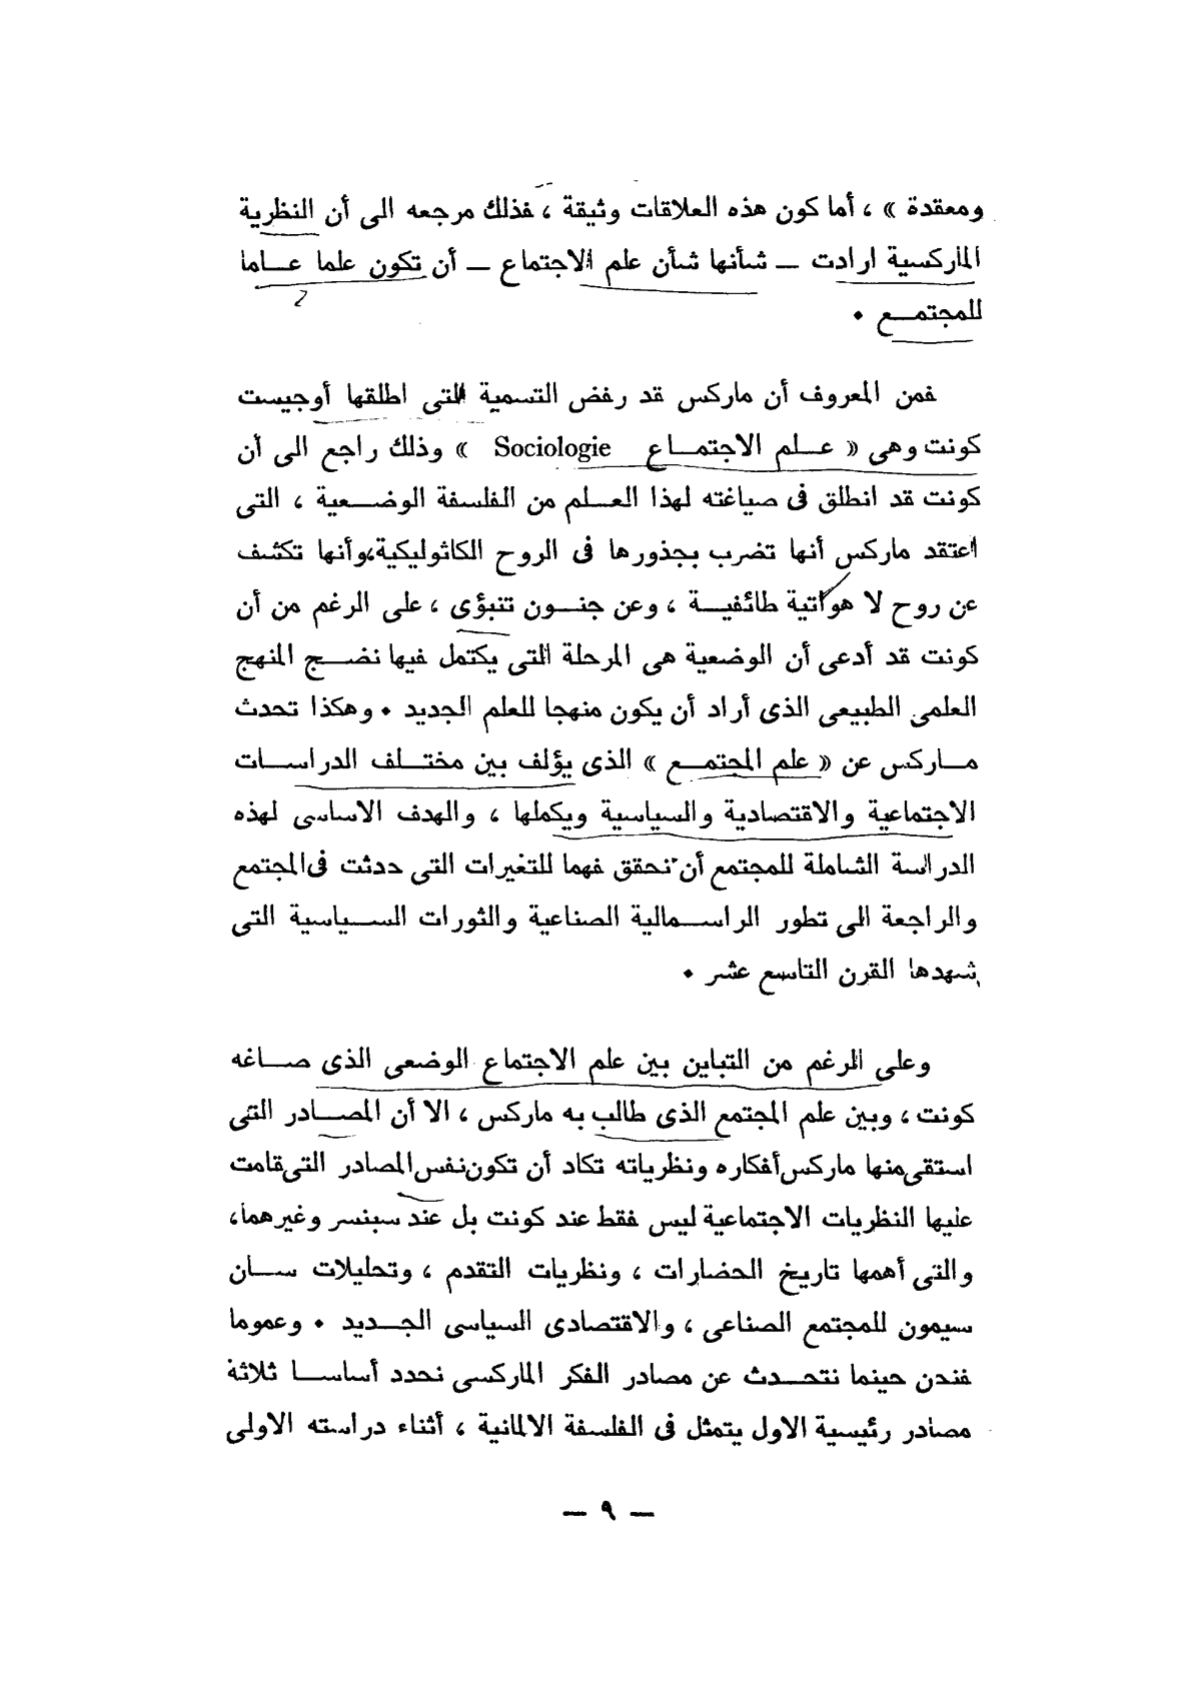 ومعقدة » ، أما كون هذه العلاقات وثيقة ، فذلك مرجعه الى أن النظرية
الماركسية ارادت ــ شأنها شأن علم الاجتماع ــ أن تكون علما عـــاما
للمجتمـــع •
فمن المعروف أن ماركس قد رفض التسمية التى اطلقها أوجيست
كونت وهى « عـــلم الاجتمـــاع Sociologie » وذلك راجع الى أن
كونت قد انطلق فى صياغته لهذا العـــلم من الفلسفة الوضـــعية ، التى
اعتقد ماركس أنها تضرب بجذورها فى الروح الكاثوليكية،وأنها تكشف
عن روح لا هواتية طائفيـــة ، وعن جنـــون تنبؤى ، على الرغم من أن
كونت قد أدعى أن الوضعية هى المرحلة التى يكتمل فيها نضـــج المنهج
العلمى الطبيعى الذى أراد أن يكون منهجا للعلم الجديد • وهكذا تحدث
مـــاركس عن « علم المجتمـــع » الذى يؤلف بين مختـــلف الدراســـات
الاجتماعية والاقتصادية والسياسية ويكملها ، والهدف الاساسى لهذه
الدراسة الشاملة للمجتمع أن نحقق فهما للتغيرات التى حدثت فى المجتمع
والراجعة الى تطور الراســـمالية الصناعية والثورات الســـياسية التى
شهدها القرن التاسع عشر •
وعلى الرغم من التباين بين علم الاجتماع الوضعى الذى صـــاغه
كونت ، وبين علم المجتمع الذى طالب به ماركس ، الا أن المصـــادر التى
استقى منها ماركس أفكاره ونظرياته تكاد أن تكون نفس المصادر التى قامت
عليها النظريات الاجتماعية ليس فقط عند كونت بل عند سبنسر وغيرهما،
والتى أهمها تاريخ الحضارات ، ونظريات التقدم ، وتحليلات ســـان
سيمون للمجتمع الصناعى ، والاقتصادى السياسى الجـــديد • وعموما
فنحن حينما نتحـــدث عن مصادر الفكر الماركسى نحدد أساســـا ثلاثة
مصادر رئيسية الاول يتمثل فى الفلسفة الالمانية ، أثناء دراسته الاولى
ــ ٩ ــ